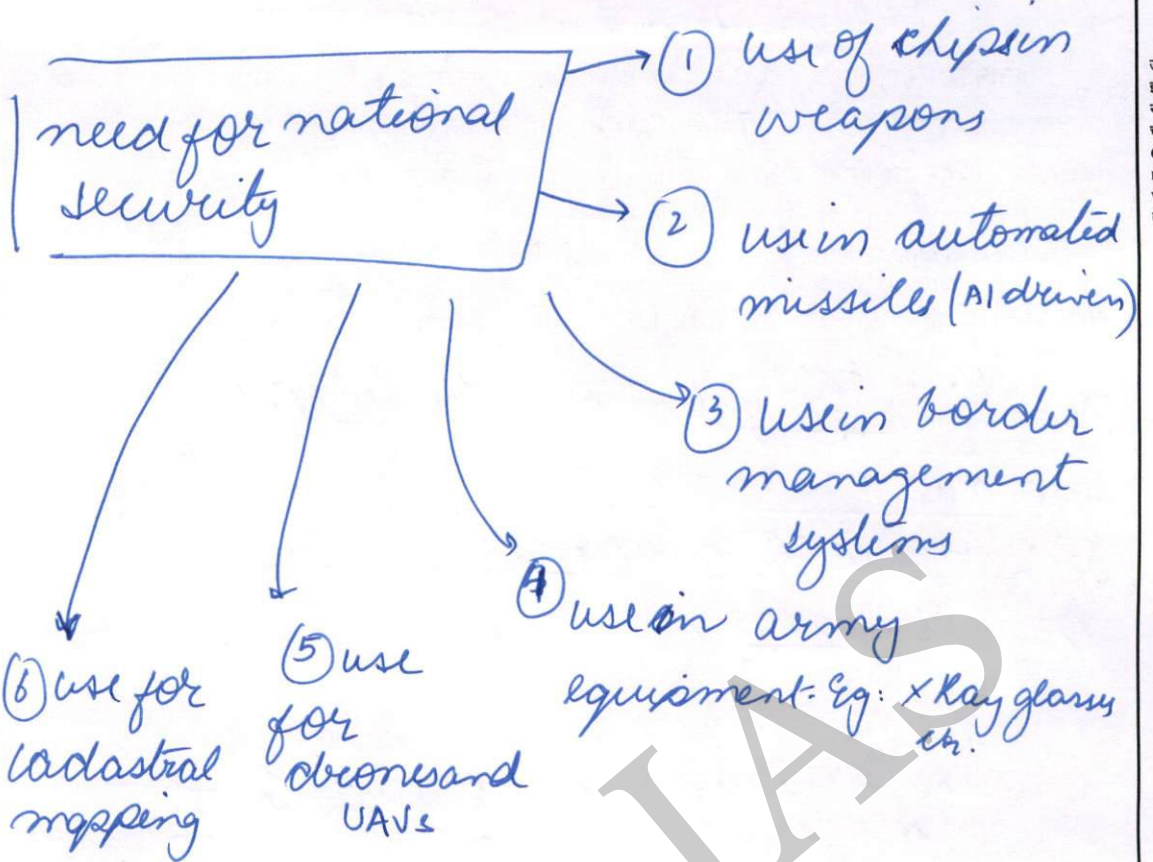 need for national
security
① use of chips in
weapons
② use in automated
missiles (AI driven)
③ use in border
management
systems
④ use in army
equipment. Eg: X Ray glasses
etc.
⑤ use
for
drones and
UAVs
⑥ use for
cadastral
mapping
IAS